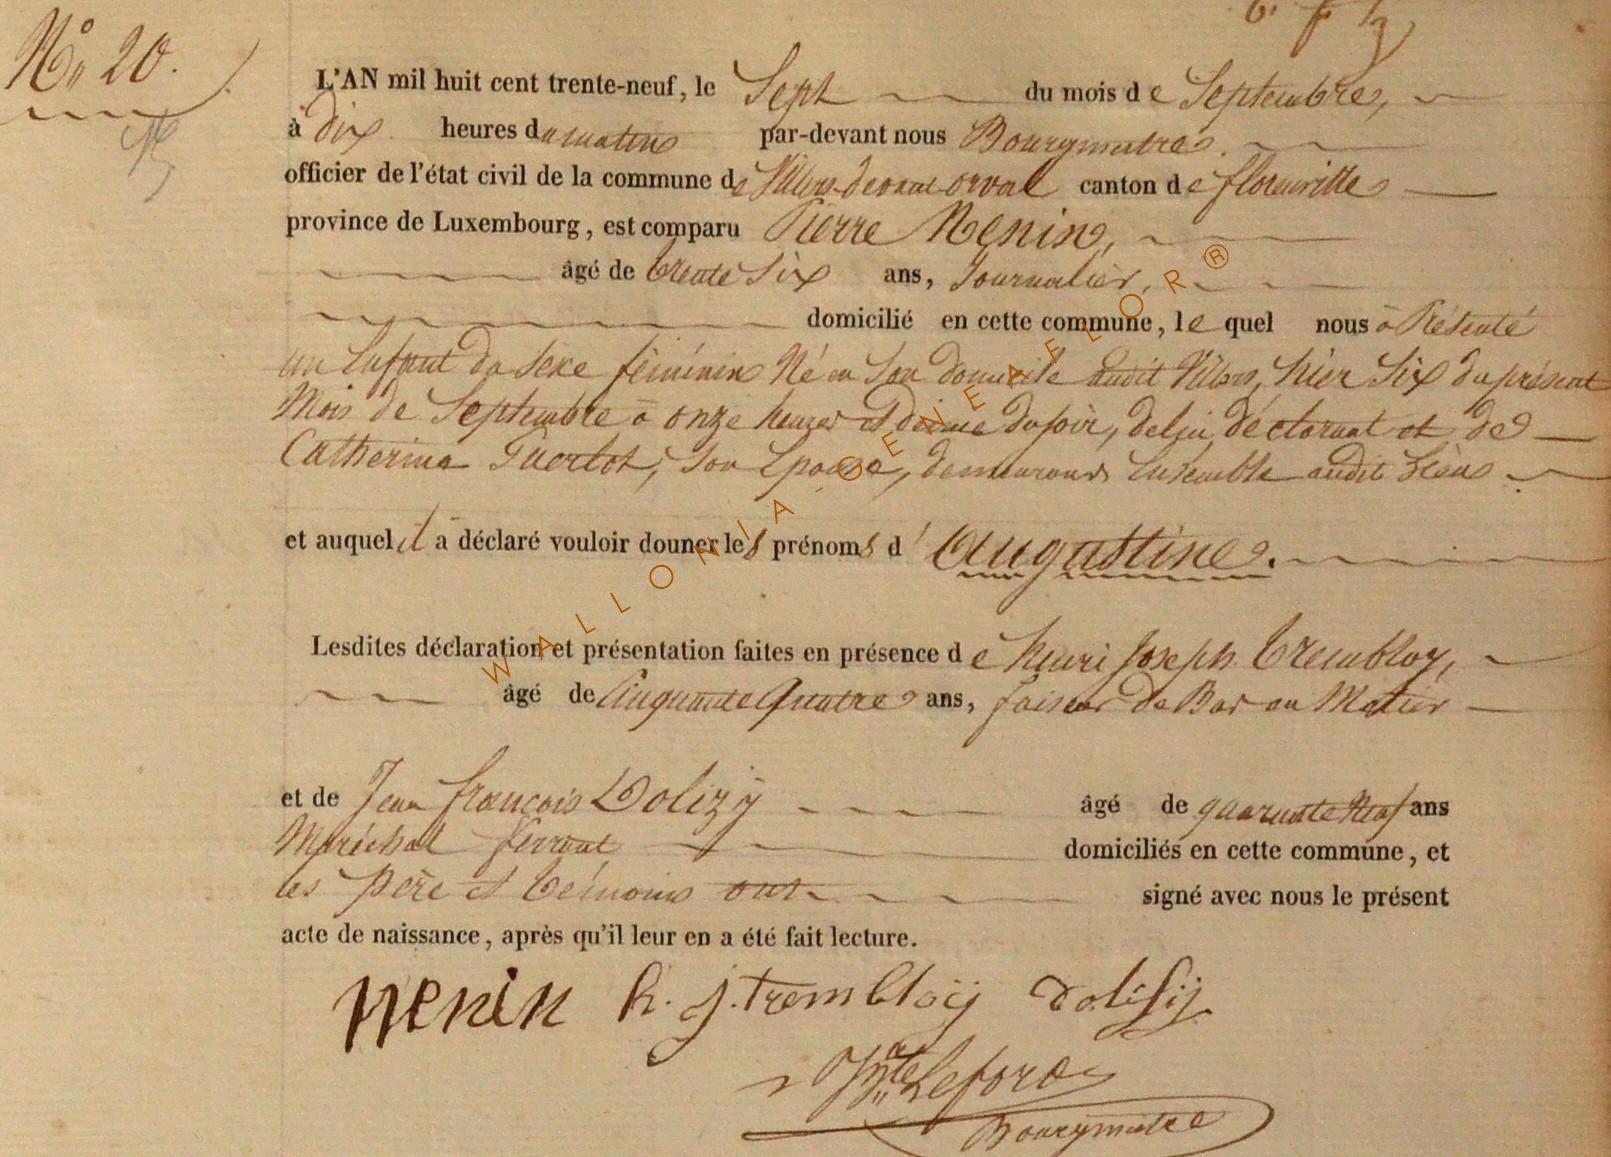 N° 20.
L'AN mil huit cent trente-neuf, le Sept du mois de Septembre,
à dix heures du matin par-devant nous Bourgmestre
officier de l'état civil de la commune de Villers-devant-orval canton de florenville
province de Luxembourg, est comparu Pierre Nenin,
âgé de trente Six ans, Journalier,
domicilié en cette commune, le quel nous à Présenté
un Enfant du Sexe féminin Né en Son domicile audit Villers, hier Six du présent
Mois de Septembre à onze heures et demie du soir, de lui déclarant et de
Catherine Guerlot, Son Epouse, demeurant Ensemble audit Lieu.
et auquel il a déclaré vouloir donner les prénoms d'Augustine.
Lesdites déclaration et présentation faites en présence de henri Joseph Trembloy,
âgé de Cinquante Quatre ans, faiseur de Bas au Métier
et de Jean françois Dolizy âgé de quarante Neuf ans
Maréchal ferrant domiciliés en cette commune, et
les Père et témoins ont signé avec nous le présent
acte de naissance, après qu'il leur en a été fait lecture.
nenin h. j. trembloÿ dolisij
Leforo
Bourgmestre
WALLONIA-GENEAFLOR®